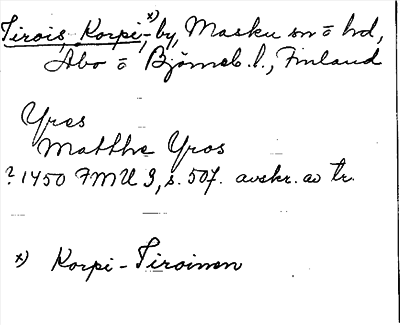 Tirois, Korpi-, x) by, Masku sn o hd,
Åbo o Björneb. l., Finland
Yres
Matthe Yros
? 1450 FMU 3, s. 507. avskr. av tr.
x) Korpi-Tiroinen